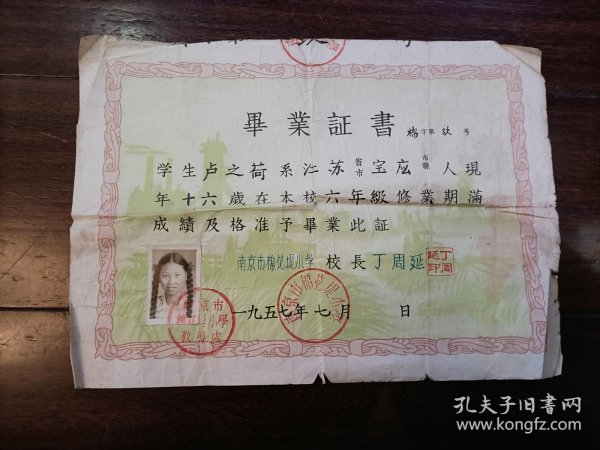 畢業証書 棉字第玖号
学生卢之荷系江苏省市宝应市縣人現
年十六歲在本校六年級修業期滿
成績及格准予畢業此証
南京市棉花堤小学 校長丁周延 丁周延印
南京市棉花堤小学
一九五七年七月 日
孔夫子旧書网
www.kongfz.com